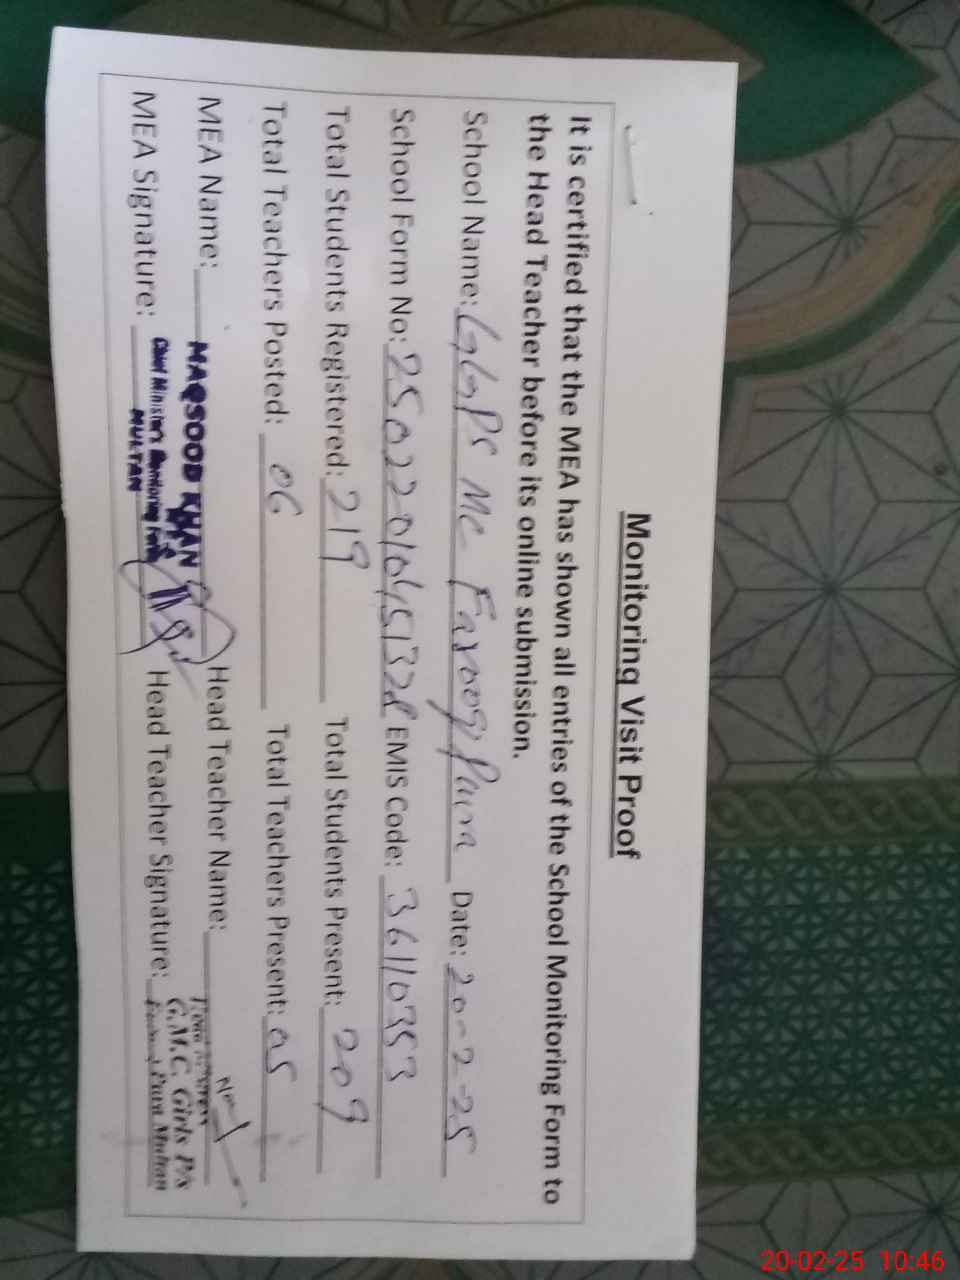 Monitoring Visit Proof
It is certified that the MEA has shown all entries of the School Monitoring Form to
the Head Teacher before its online submission.
School Name: GGPS MC Farooq Pura Date: 20-2-25
School Form No: EMIS Code: 36110353
Total Students Registered: 219 Total Students Present: 209
Total Teachers Posted: 06 Total Teachers Present: 05
MEA Name: MAQSOOD KHAN Head Teacher Name:
MEA Signature: Chief Minister's Monitoring Force Head Teacher Signature:
MULTAN
G.M.C. Girls P/S
Pura Multan
20-02-25 10:46